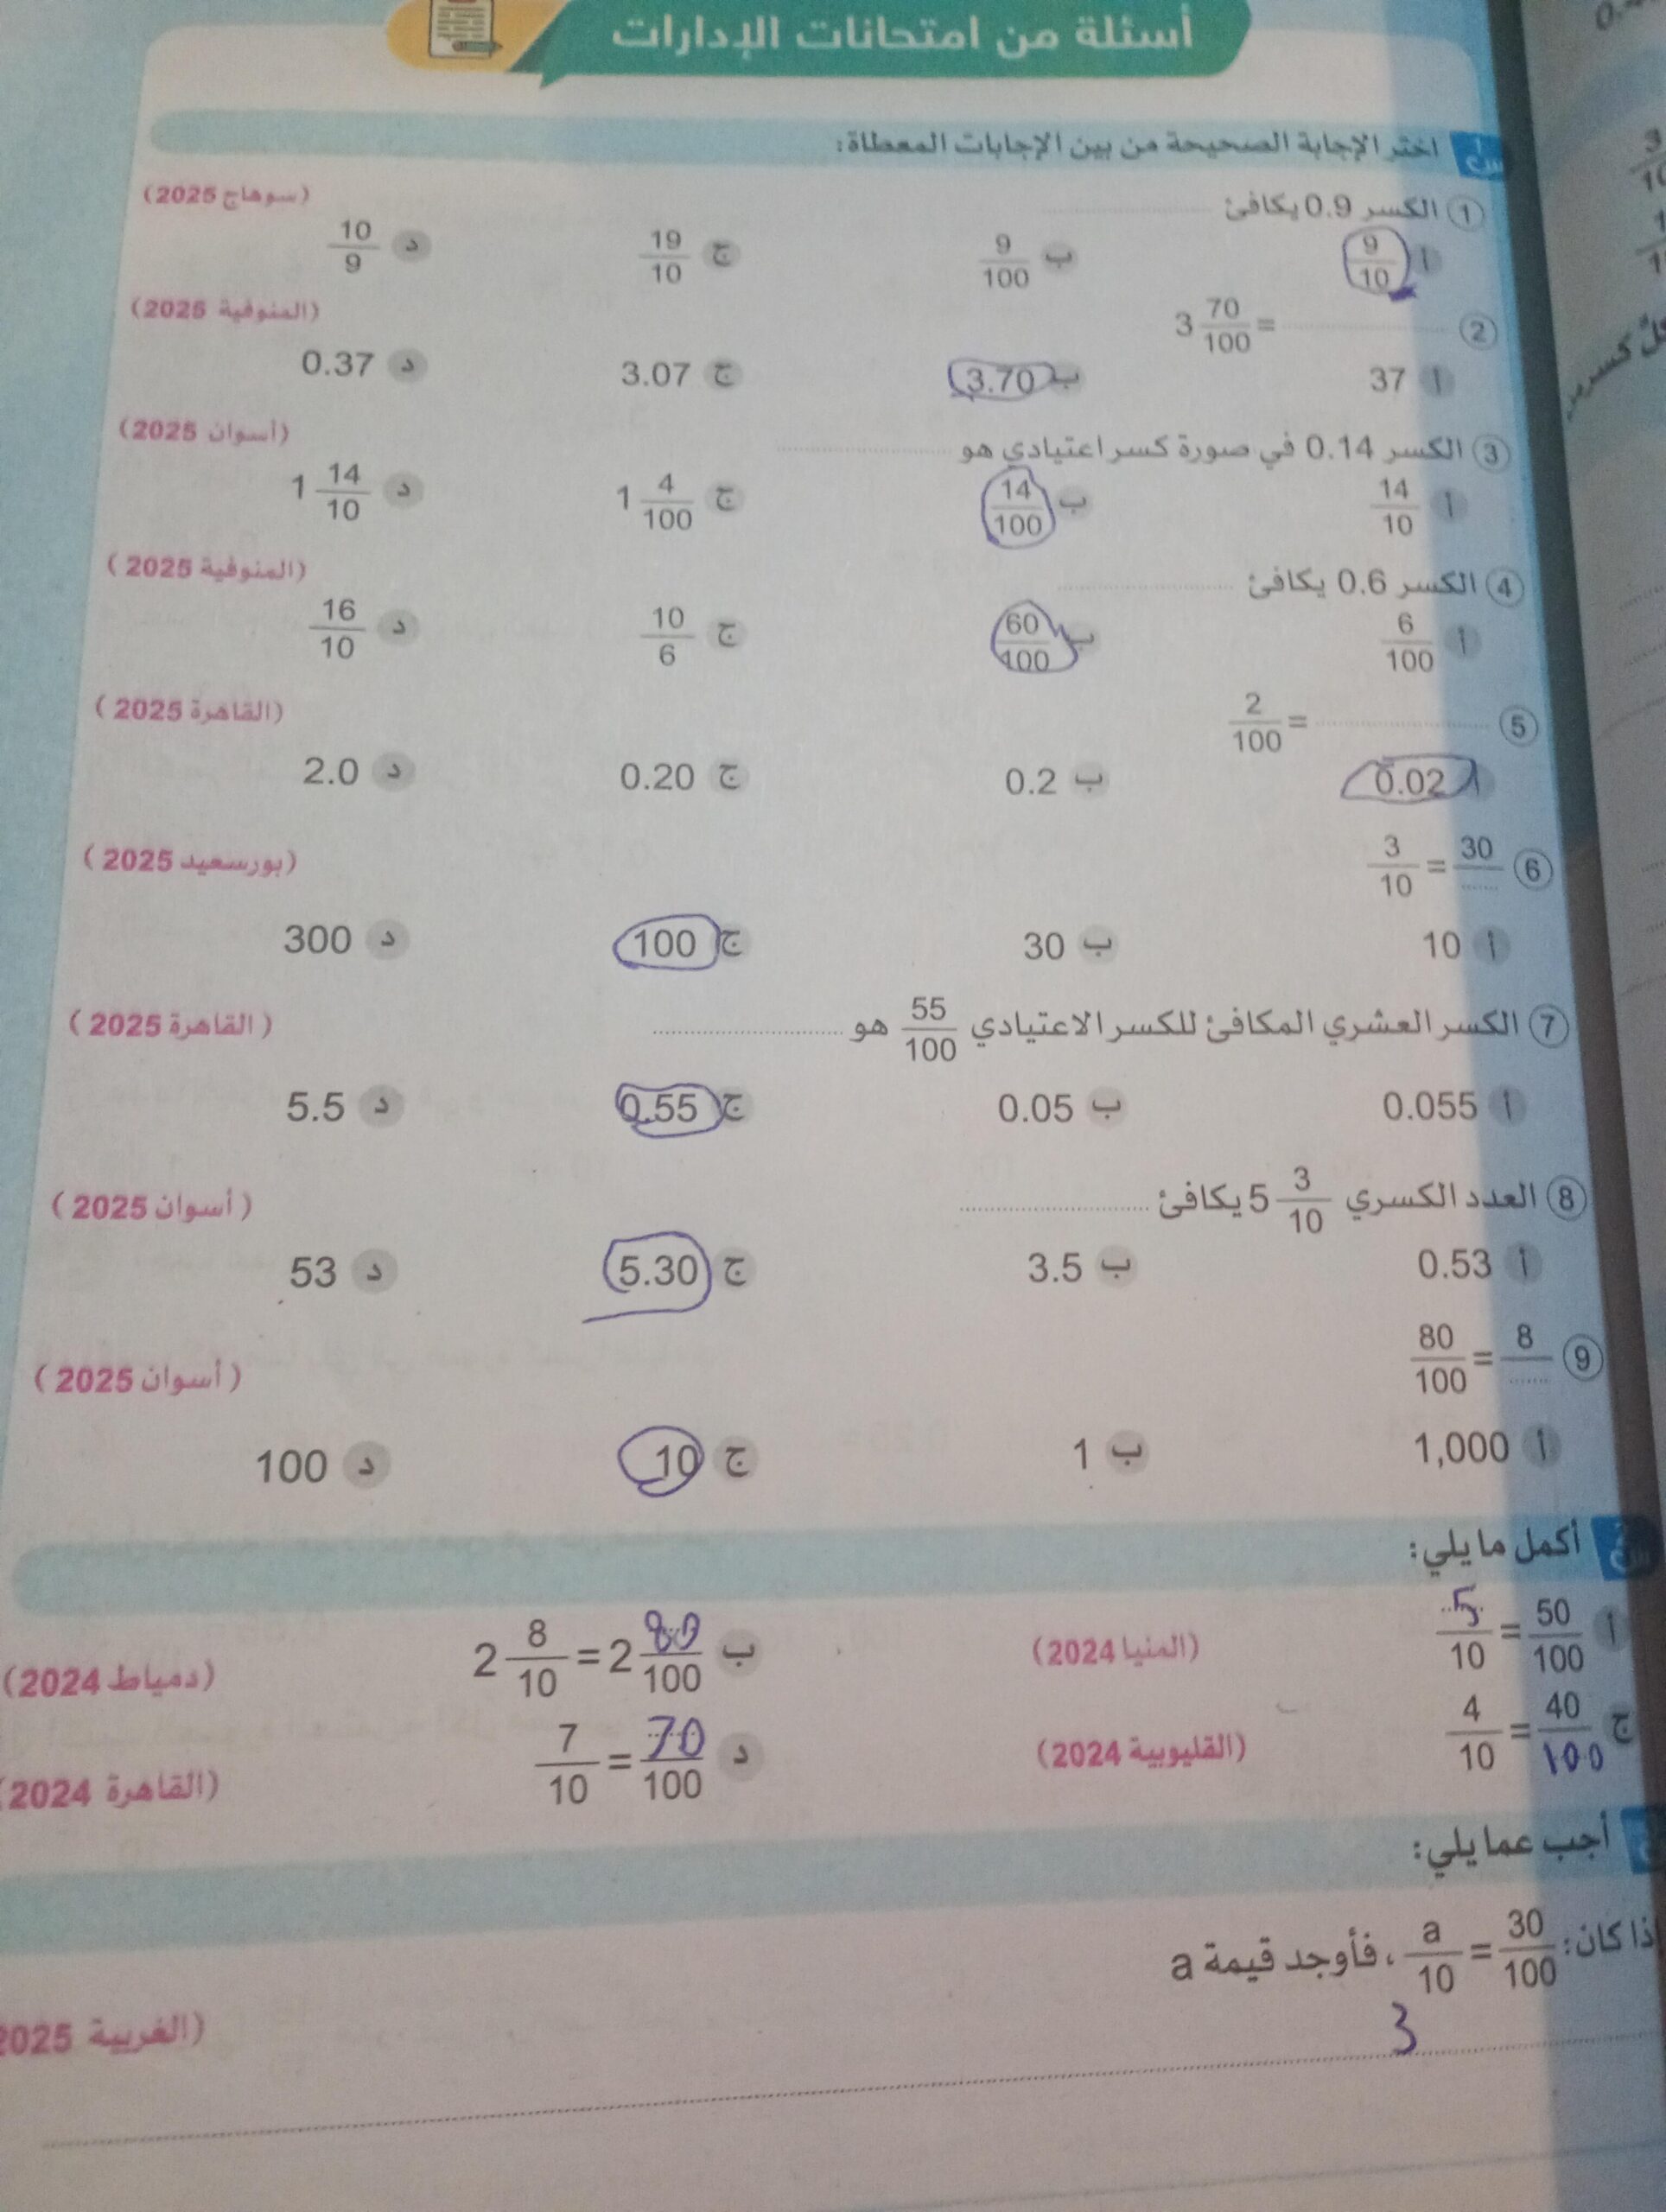 أسئلة من امتحانات الإدارات
اختر الإجابة الصحيحة من بين الإجابات المعطاة:
① الكسر 0.9 يكافئ ............ (سوهاج 2025)
أ 9/10 ب 9/100 ج 19/10 د 10/9
② 3 70/100 = ............ (المنوفية 2025)
أ 37 ب 3.70 ج 3.07 د 0.37
③ الكسر 0.14 في صورة كسر اعتيادي هو ............ (أسوان 2025)
أ 14/10 ب 14/100 ج 1 4/100 د 1 14/10
④ الكسر 0.6 يكافئ ............ (المنوفية 2025)
أ 6/100 ب 60/100 ج 10/6 د 16/10
⑤ 2/100 = ............ (القاهرة 2025)
أ 0.02 ب 0.2 ج 0.20 د 2.0
⑥ 3/10 = 30/...... (بورسعيد 2025)
أ 10 ب 30 ج 100 د 300
⑦ الكسر العشري المكافئ للكسر الاعتيادي 55/100 هو ............ (القاهرة 2025)
أ 0.055 ب 0.05 ج 0.55 د 5.5
⑧ العدد الكسري 5 3/10 يكافئ ............ (أسوان 2025)
أ 0.53 ب 3.5 ج 5.30 د 53
⑨ 80/100 = 8/...... (أسوان 2025)
أ 1,000 ب 1 ج 10 د 100
أكمل ما يلي:
أ 5/10 = 50/100 (المنيا 2024) ب 2 8/10 = 2 80/100 (دمياط 2024)
ج 4/10 = 40/100 (القليوبية 2024) د 7/10 = 70/100 (القاهرة 2024)
أجب عما يلي:
إذا كان: a/10 = 30/100 ، فأوجد قيمة a
3
(الغربية 2025